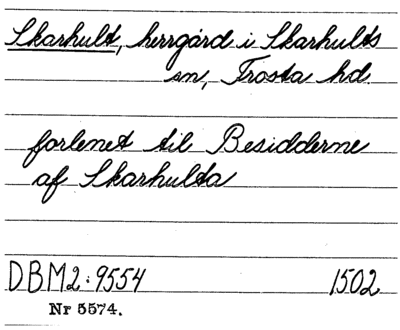 Skarhult, herrgård i Skarhults
sn, Frosta hd.
forlenet til Besidderne
af Skarhulta
DBM2:9554 1502
Nr 5574.